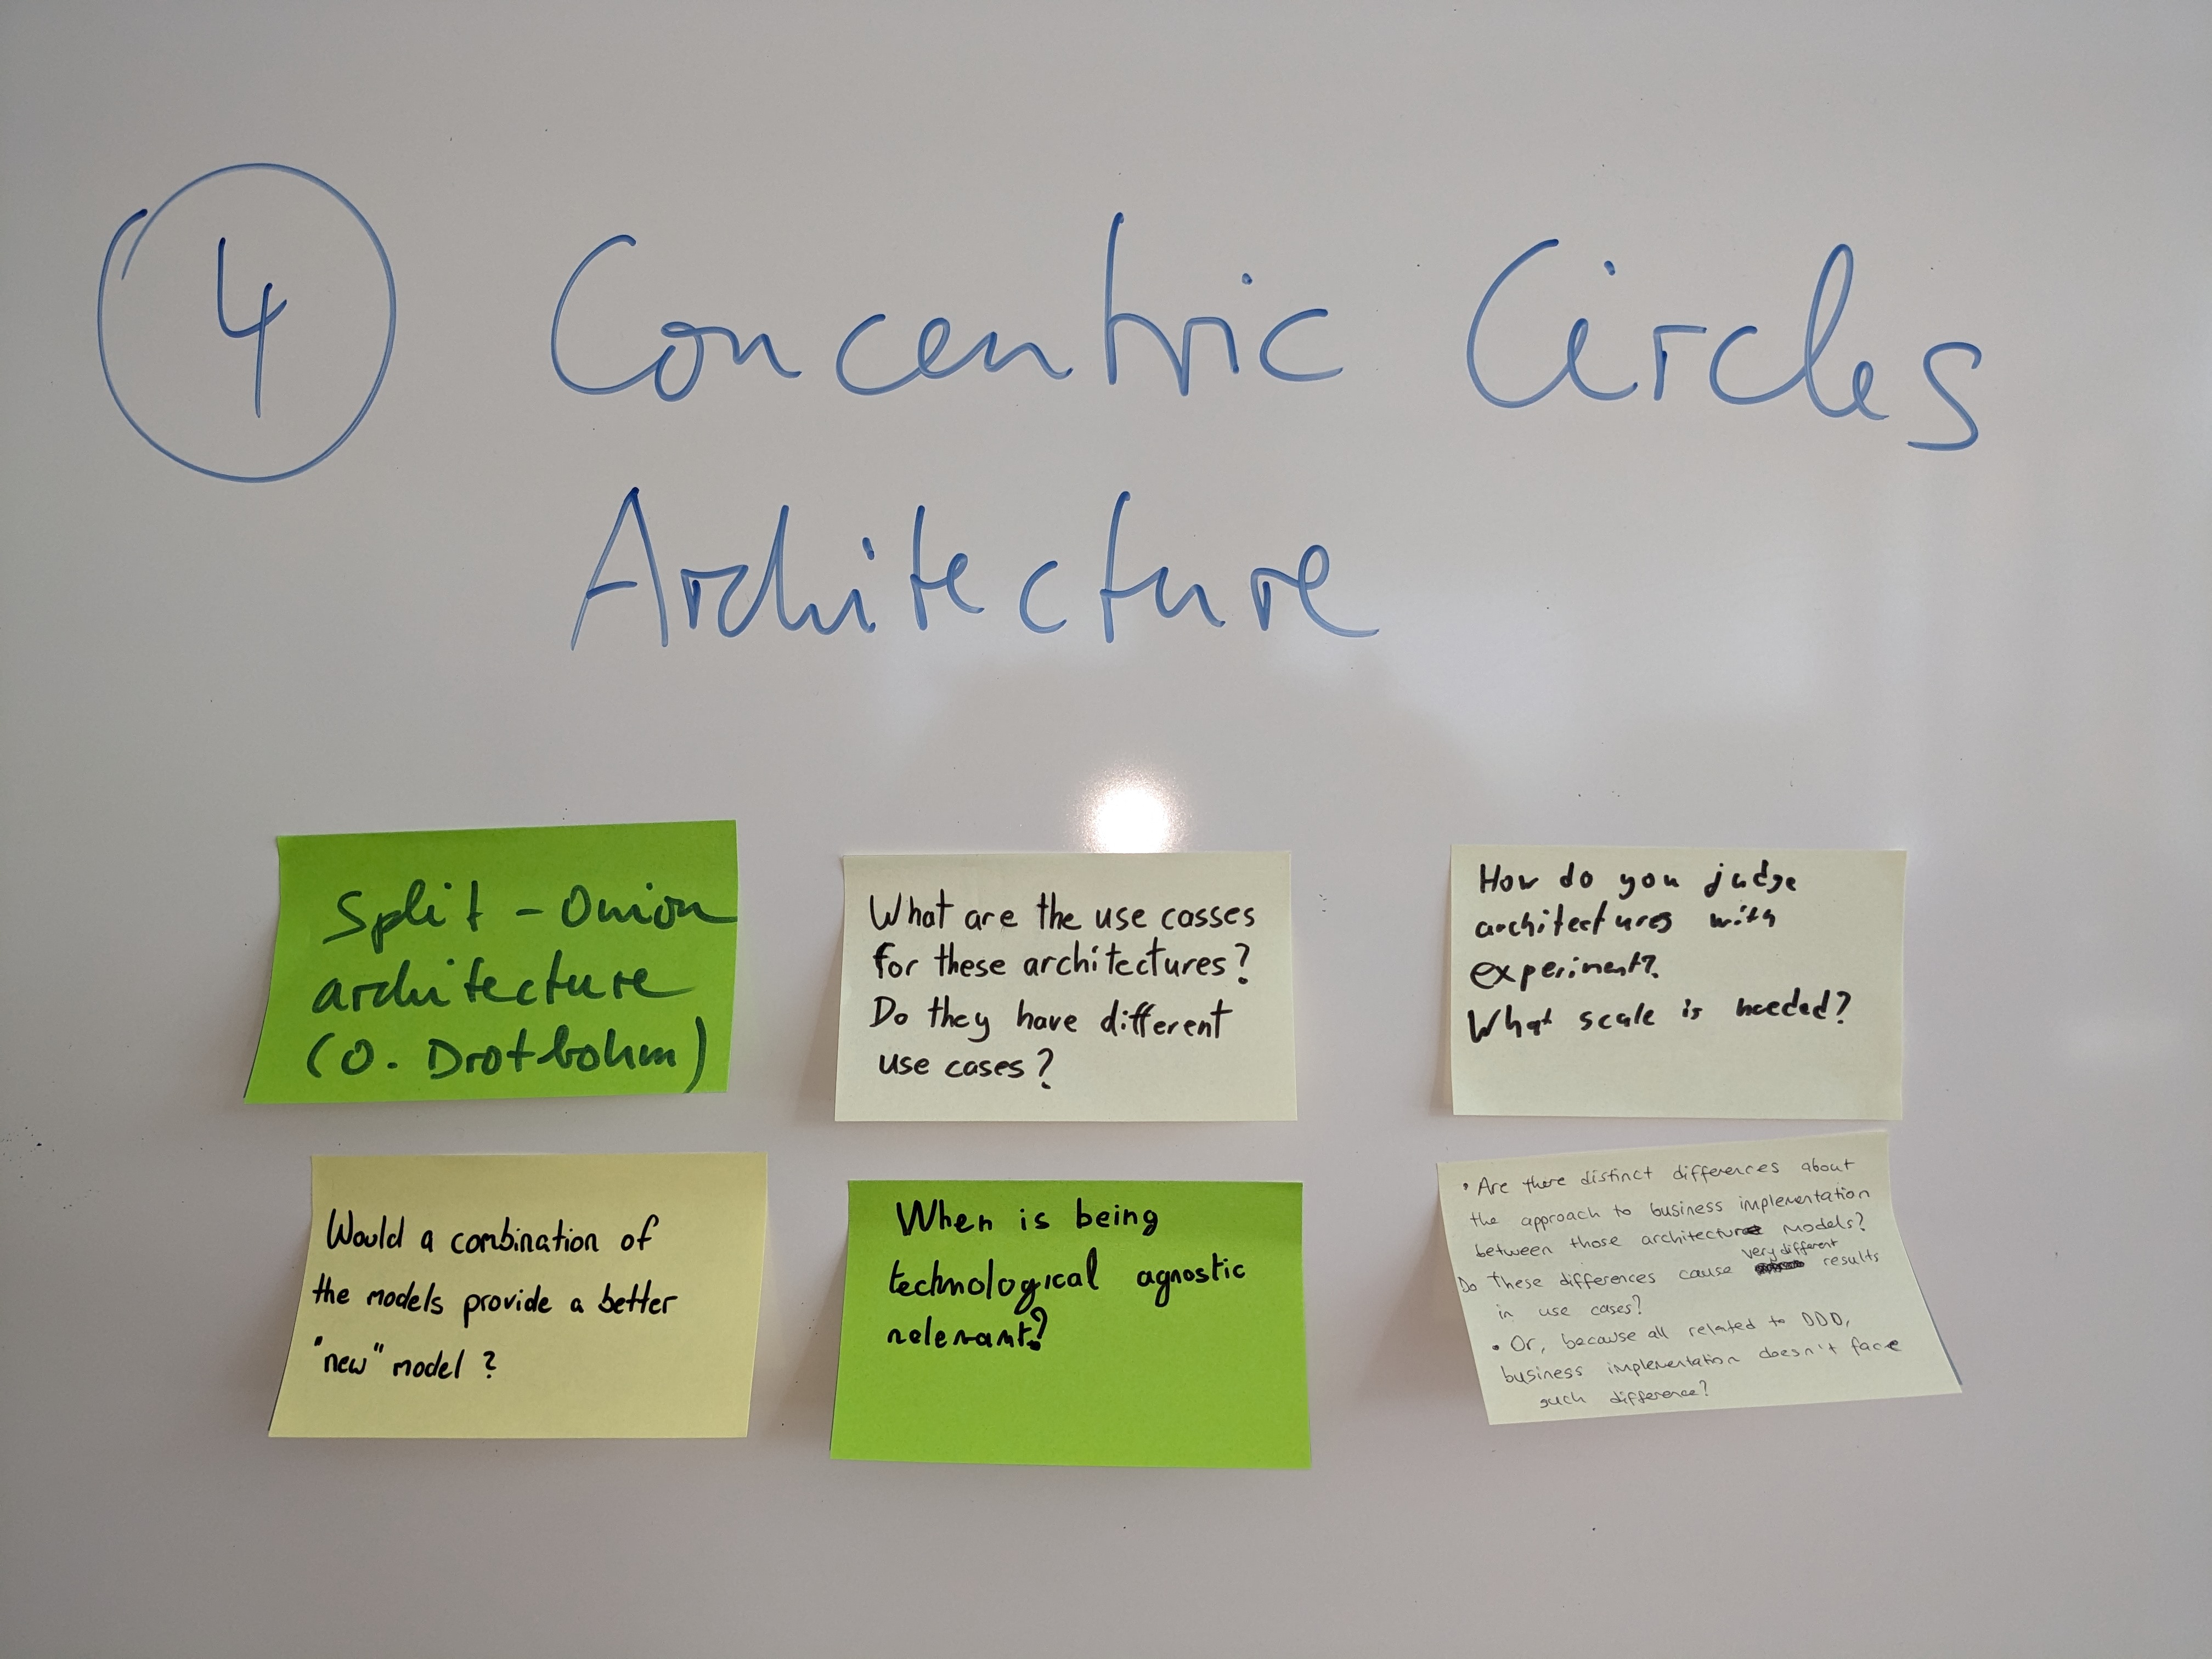 4
Concentric Circles
Architecture
Split-Onion
architecture
(O. Drotbohm)
What are the use casses
for these architectures?
Do they have different
use cases?
How do you judge
architectures with
experiment?
What scale is needed?
Would a combination of
the models provide a better
"new" model?
When is being
technological agnostic
relevant?
• Are there distinct differences about
the approach to business implementation
between those architecture models?
very different
Do these differences cause results
in use cases?
• Or, because all related to DDD,
business implementation doesn't face
such difference?